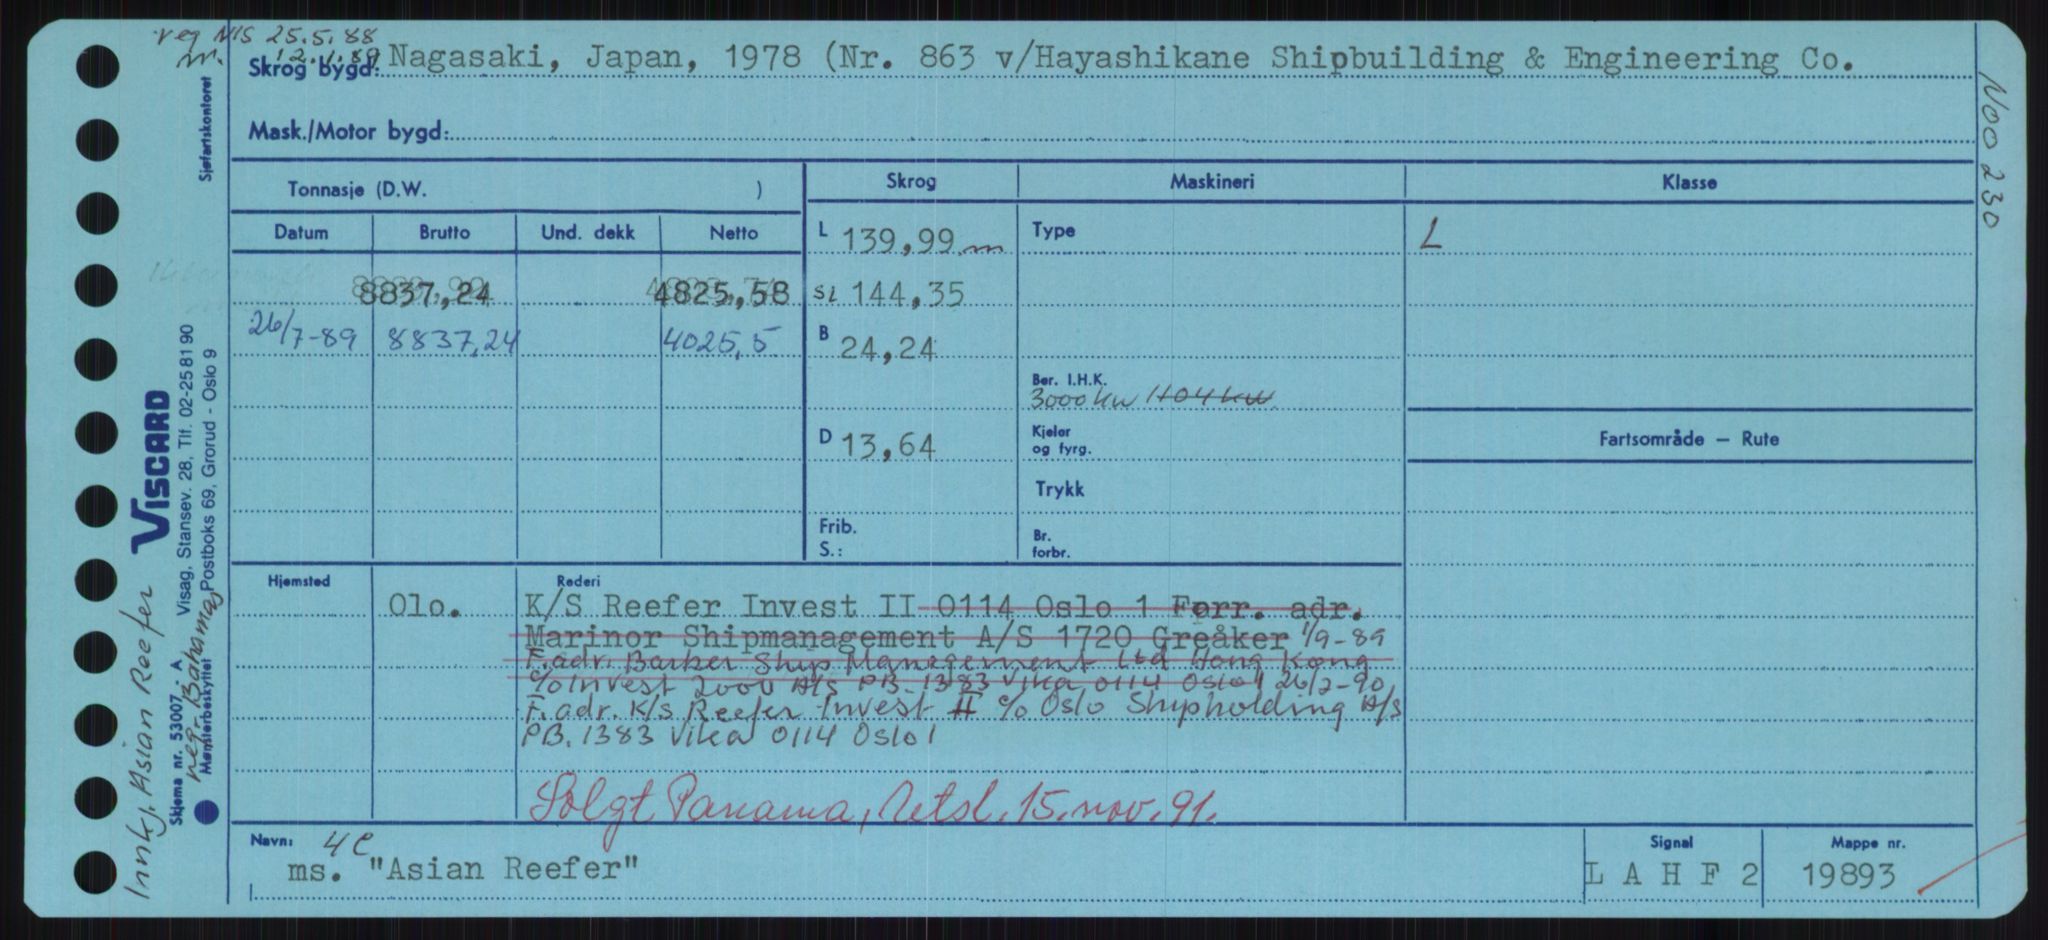 reg NIS 25.5.88
m. 12.1.89
Skrog bygd: Nagasaki, Japan, 1978 (Nr. 863 v/Hayashikane Shipbuilding & Engineering Co.
Mask./Motor bygd:
Tonnasje (D.W. )
Skrog Maskineri Klasse
Datum Brutto Und. dekk Netto
L 139,99 m Type L
8837,24 4825,58 SL 144,35
26/7-89 8837,24 4025,5 B 24,24
Ber. I.H.K.
3000 kw 1104 kw
D 13,64 Kjeler og fyrg.
Fartsområde – Rute
Trykk
Frib. S.: Br. forbr.
Hjemsted Rederi
Olo. K/S Reefer Invest II 0114 Oslo 1 Forr. adr.
Marinor Shipmanagement A/S 1720 Greåker 1/9-89
F.adr. Barber Ship Management Ltd Hong Kong
c/o Invest 2000 A/s PB 1383 Vika 0114 Oslo 1 26/2-90
F.adr. K/s Reefer Invest II c/o Oslo Shipholding A/s
PB. 1383 Vika 0114 Oslo 1
Solgt Panama, Uetsl. 15. nov. 91.
Navn: 4C
ms. "Asian Reefer"
Signal
L A H F 2
Mappe nr.
19893
N00 230
Sjøfartskontoret
Innkj. Asian Reefer
VISCARD
Skjema nr. 53007 - A Visag. Stansev. 28, Tlf. 02-25 81 90
reg. Bahamas
Mønsterbeskyttet Postboks 69, Grorud - Oslo 9